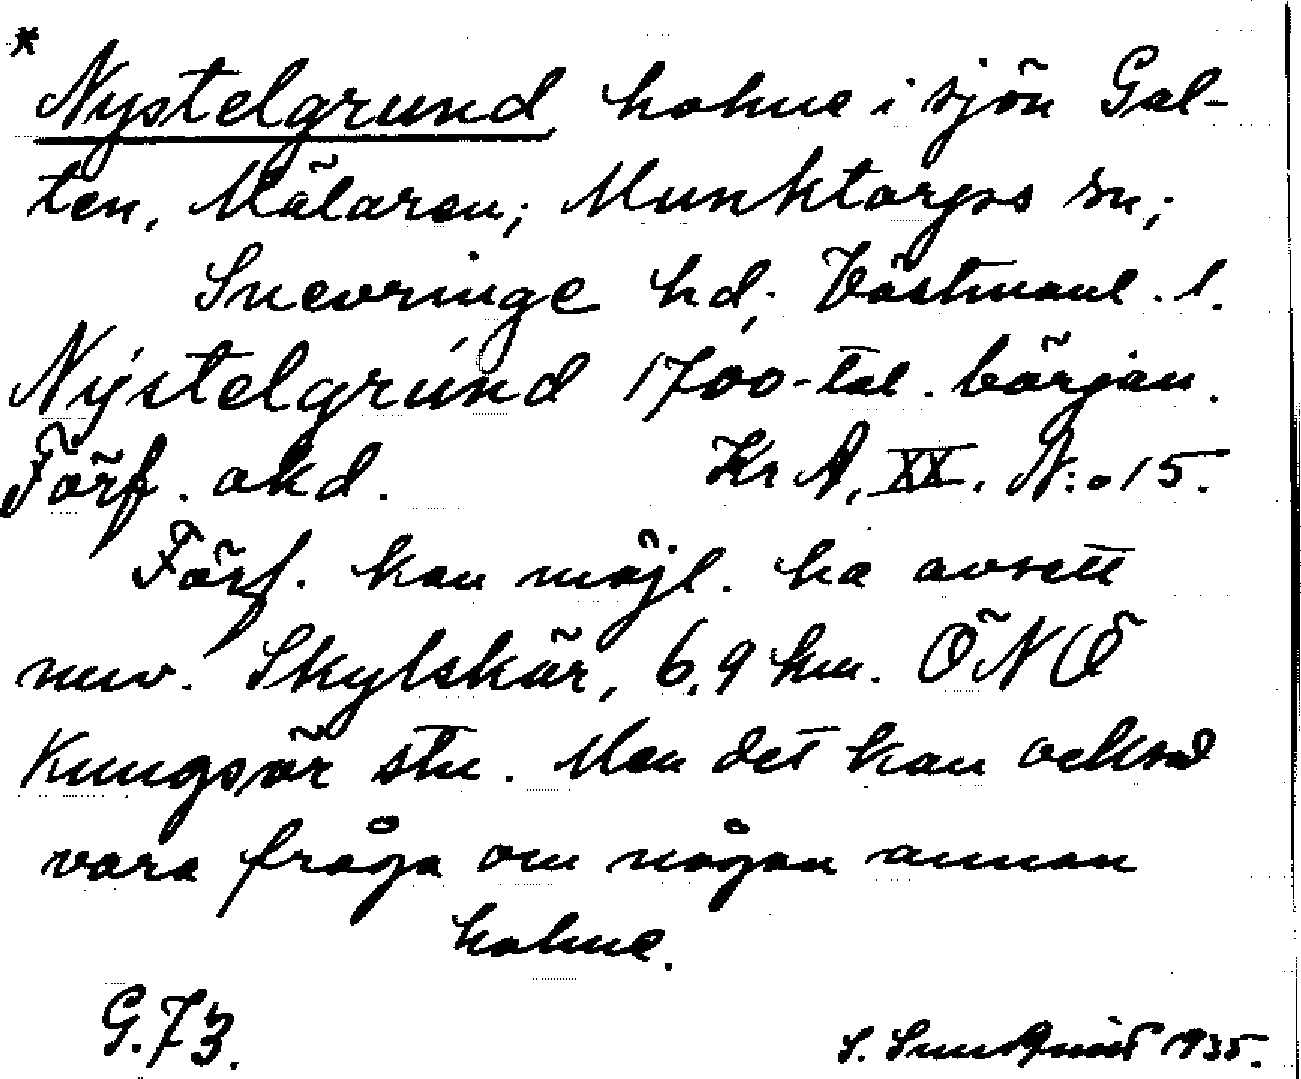 * Nystelgrund, holme i sjön Gal-
ten, Mälaren; Munktorps sn;
Snevringe hd; Västmanl. l.
Nystelgrund 1700-tal. början.
Förf. okd. Kr A, XX. N:o 15.
Förf. kan möjl. ha avsett
nuv. Skylskär, 6,9 km. ÖNÖ
Kungsör stn. Men det kan också
vara fråga om någon annan
holme.
G. 73. S. Sundqvist 1935.